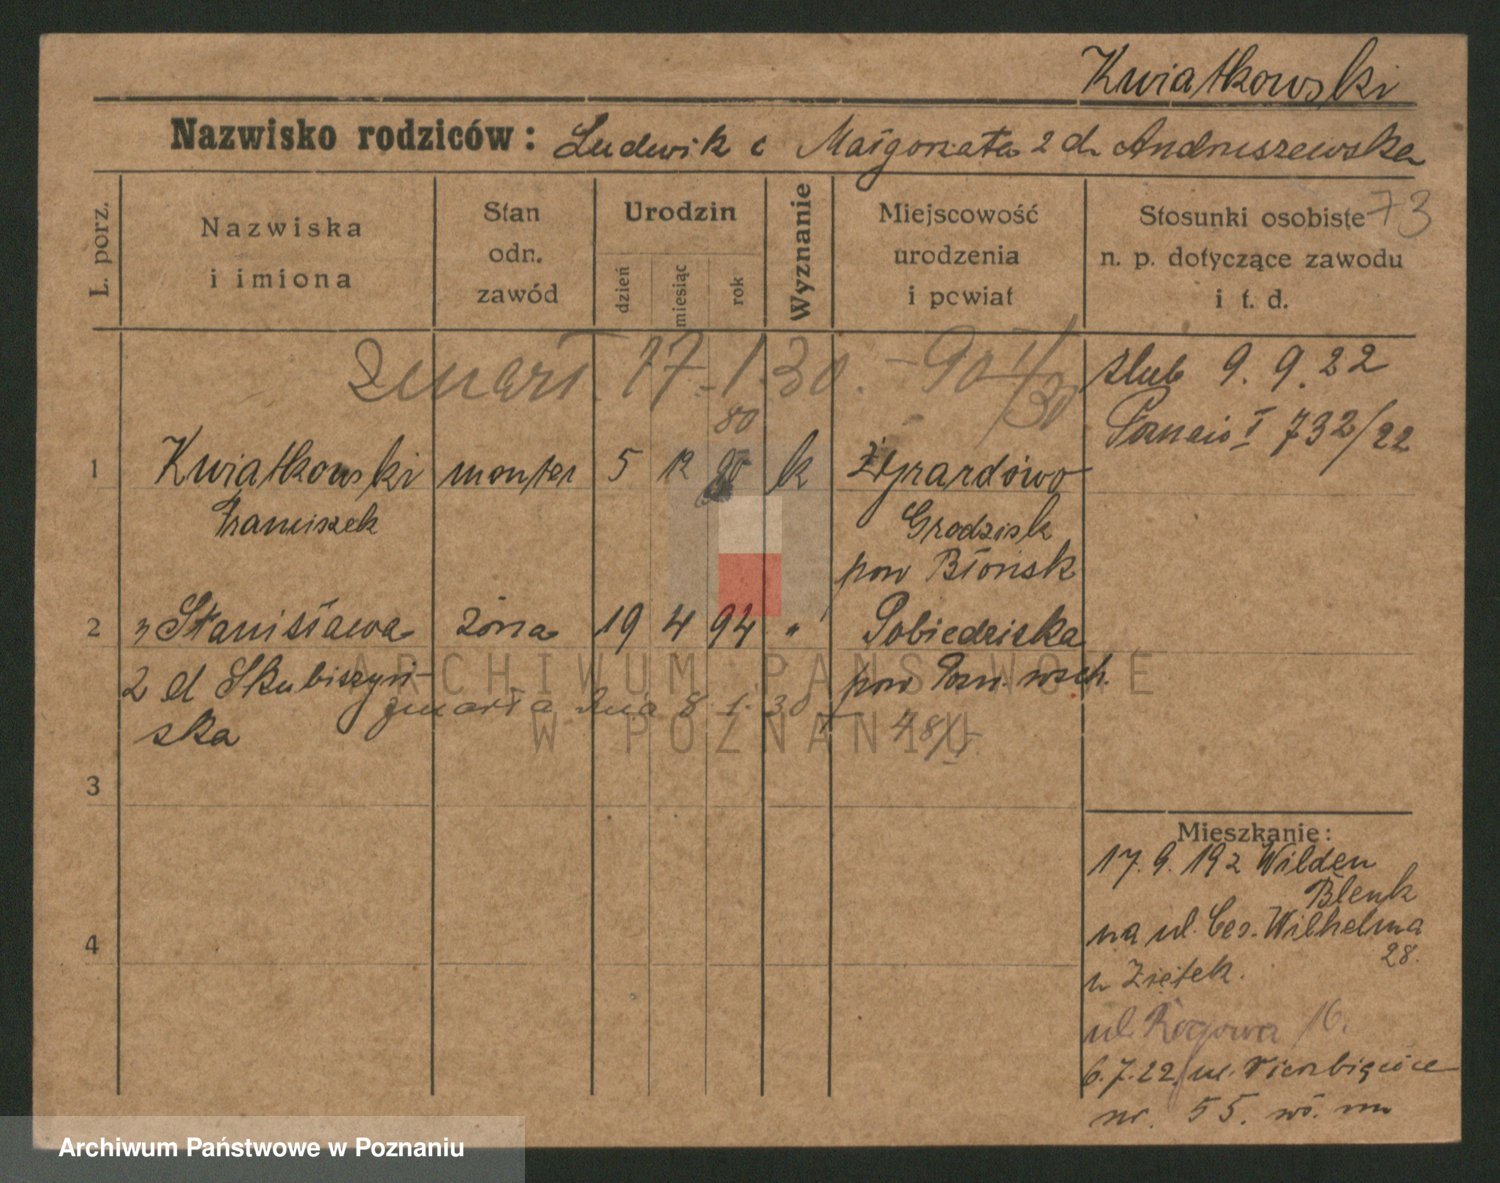 Kwiatkowski
Nazwisko rodziców: Ludwik i Małgorzata z d. Andruszewska
73
L. porz.
Nazwiska i imiona
Stan odn. zawód
Urodzin
dzień
miesiąc
rok
Wyznanie
Miejscowość urodzenia i powiat
Stosunki osobiste n. p. dotyczące zawodu i t. d.
zmarł 17.1.30.
ślub 9.9.22
Poznań I 732/22
80
1 Kwiatkowski monter 5 12 k Żyrardowo
Franciszek Grodzisk
pow Błońsk
2 Stanisława żona 19 4 94 " Pobiedziska
z d Skubiszyń- pow Pozn. wsch.
zmarła dnia 8.1.30
ska
3
4
Mieszkanie:
17.9.192 Wilden
Blenk
na ul. Ces. Wilhelma
28.
u Ziętek.
ul. Rogowa 16.
6.7.22 ul. Wierzbięcice
nr. 55.
ARCHIWUM PAŃSTWOWE
W POZNANIU
Archiwum Państwowe w Poznaniu